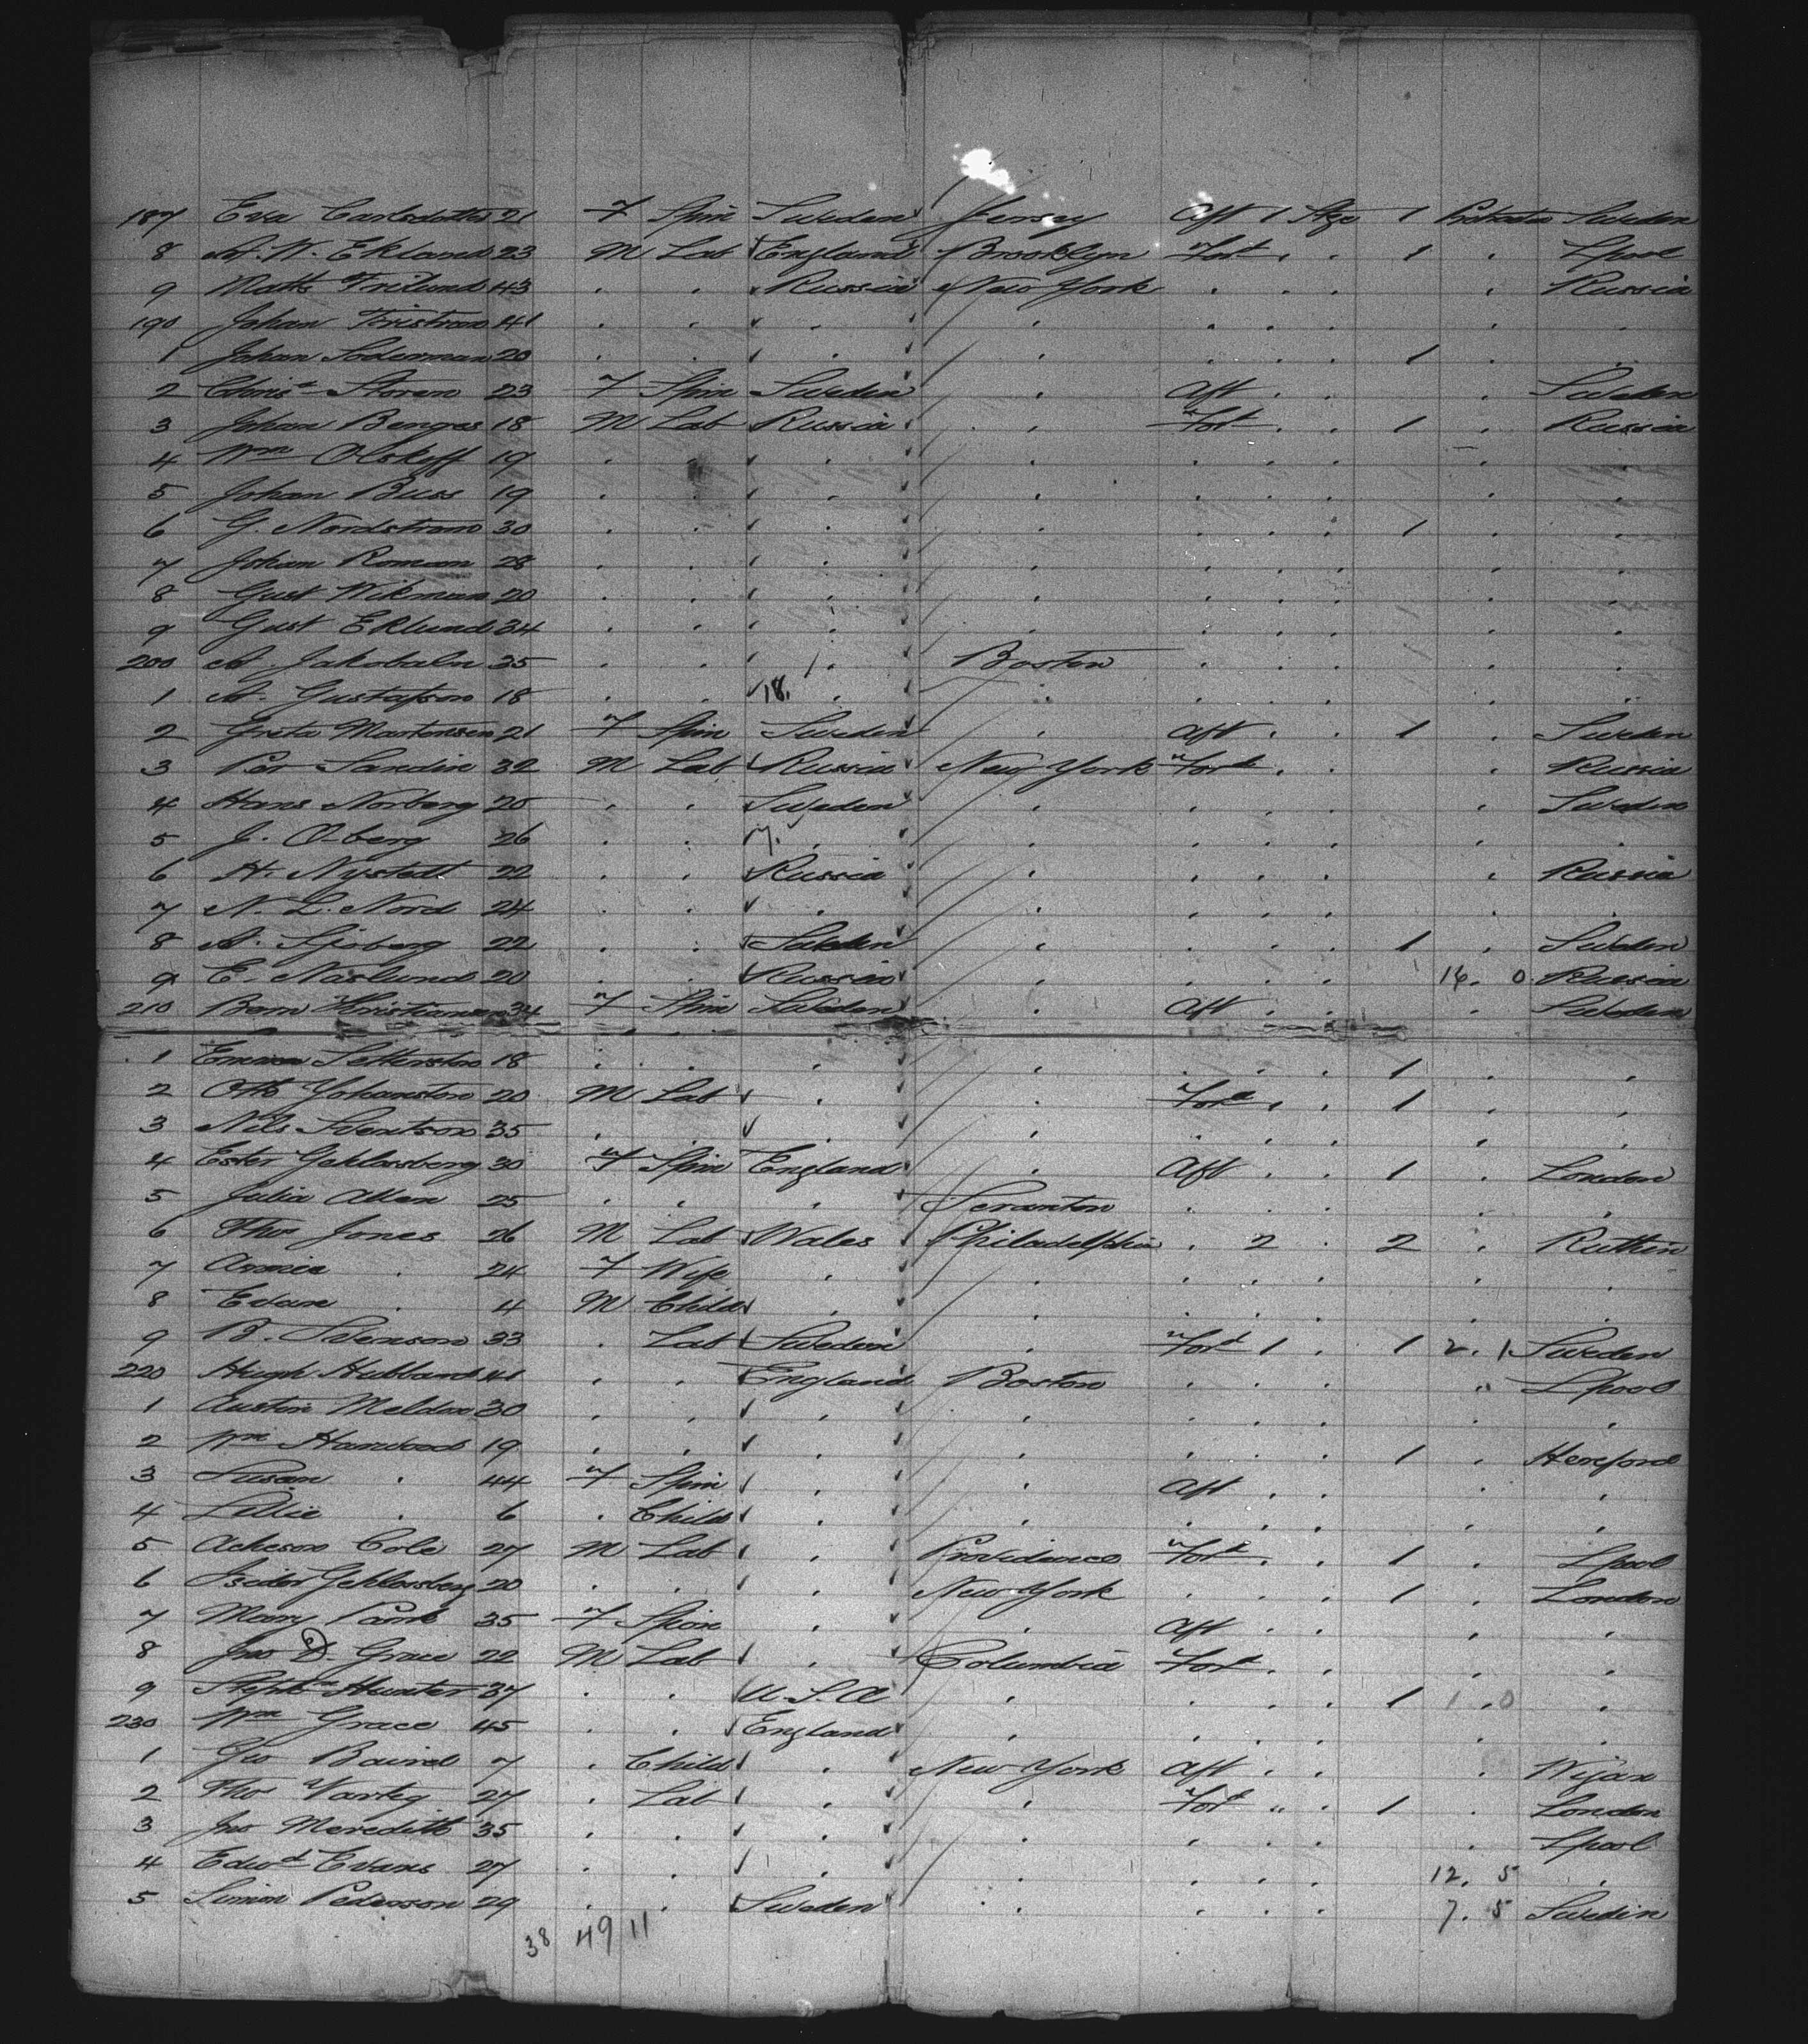 187 Eva Carlsdotter 21 F Spin Sweden Jersey Aft 1 Stge 1 Sweden
8 A. W. Eklund 23 M Lab England Brooklyn Ford . . 1 . Lpool
9 Matts Frilund 43 . . Russia New York . . . . Russia
190 Johan Foristrom 41 . . . . . . . . .
1 Johan Soderman 20 . . . . . . . 1 . .
2 Christ Storen 23 F Spin Sweden . Aft . . . Sweden
3 Johan Bengas 18 M Lab Russia . Ford . . 1 . Russia
4 Wm Olskoff 19 . . . . . . . . .
5 Johan Buss 19 . . . . . . . . .
6 G. Nordstrom 30 . . . . . . . 1 . .
7 Johan Roman 28 . . . . . . . . .
8 Gust Wikman 20 . . . . . . . . .
9 Gust Eklund 34 . . . . . . . . .
200 A. Jakobaln 35 . . . Boston . . . . .
1 A. Gustafson 18 . . 18. . . . . . . .
2 Greta Martensen 21 F Spin Sweden . Aft . . 1 . Sweden
3 Per Sandin 32 M Lab Russia New York Ford . . . Russia
4 Hans Norberg 20 . . Sweden . . . . . Sweden
5 J. O-berg 26 . . 7. . . . . . . .
6 H. Nystedt 22 . . Russia . . . . . Russia
7 N. L. Nord 24 . . . . . . . . .
8 A. Sjoberg 22 . . Sweden . . . . 1 . Sweden
9 E. Naslund 20 . . Russia . . . . 14. 0 Russia
210 Bern Kristiansen 34 F Spin Sweden . Aft . . . Sweden
1 Emma Setterston 18 . . . . . . . 1 . .
2 Otto Yohanston 20 M Lab . . Ford . . 1 . .
3 Nils Sventson 35 . . . . . . . . .
4 Ester Gehlosberg 30 F Spin England . Aft . . 1 . London
5 Julia Allen 25 . . . Scranton . . . . .
6 Thos Jones 26 M Lab Wales Philadelphia . 2 . 2 . Ruthin
7 Annie . 24 F Wife . . . . . . .
8 Evan . 4 M Child . . . . . . .
9 B. Svenson 33 . Lab Sweden . Ford 1 . 1 2. 1. Sweden
220 Hugh Hubband 41 . . England Boston . . . . Lpool
1 Austin Meldon 30 . . . . . . . . .
2 Wm Harwood 19 . . . . . . . 1 . Hereford
3 Susan . 44 F Spin . . Aft . . . .
4 Lillie . 6 . Child . . . . . . .
5 Acheson Cole 27 M Lab . Providence Ford . . 1 . Lpool
6 Isidor Gehlosberg 20 . . . New York . . . 1 . London
7 Mary Pank 35 F Spin . . Aft . . . .
8 Jno D. Grace 22 M Lab . Columbia Ford . . . .
9 Stephn Hunter 37 . . U.S.A . . . . 1 1 . 0 .
230 Wm Grace 45 . . England . . . . . .
1 Geo Baird 7 . Child . New York Aft . . . Wigan
2 Thos Varteg 27 . Lab . . Ford . . 1 . London
3 Jno Meredith 35 . . . . . . . . Lpool
4 Edwd Evans 27 . . . . . . . 12. 5 .
5 Simon Pederson 29 . . Sweden . . . . 7. 5 Sweden
38 49 11